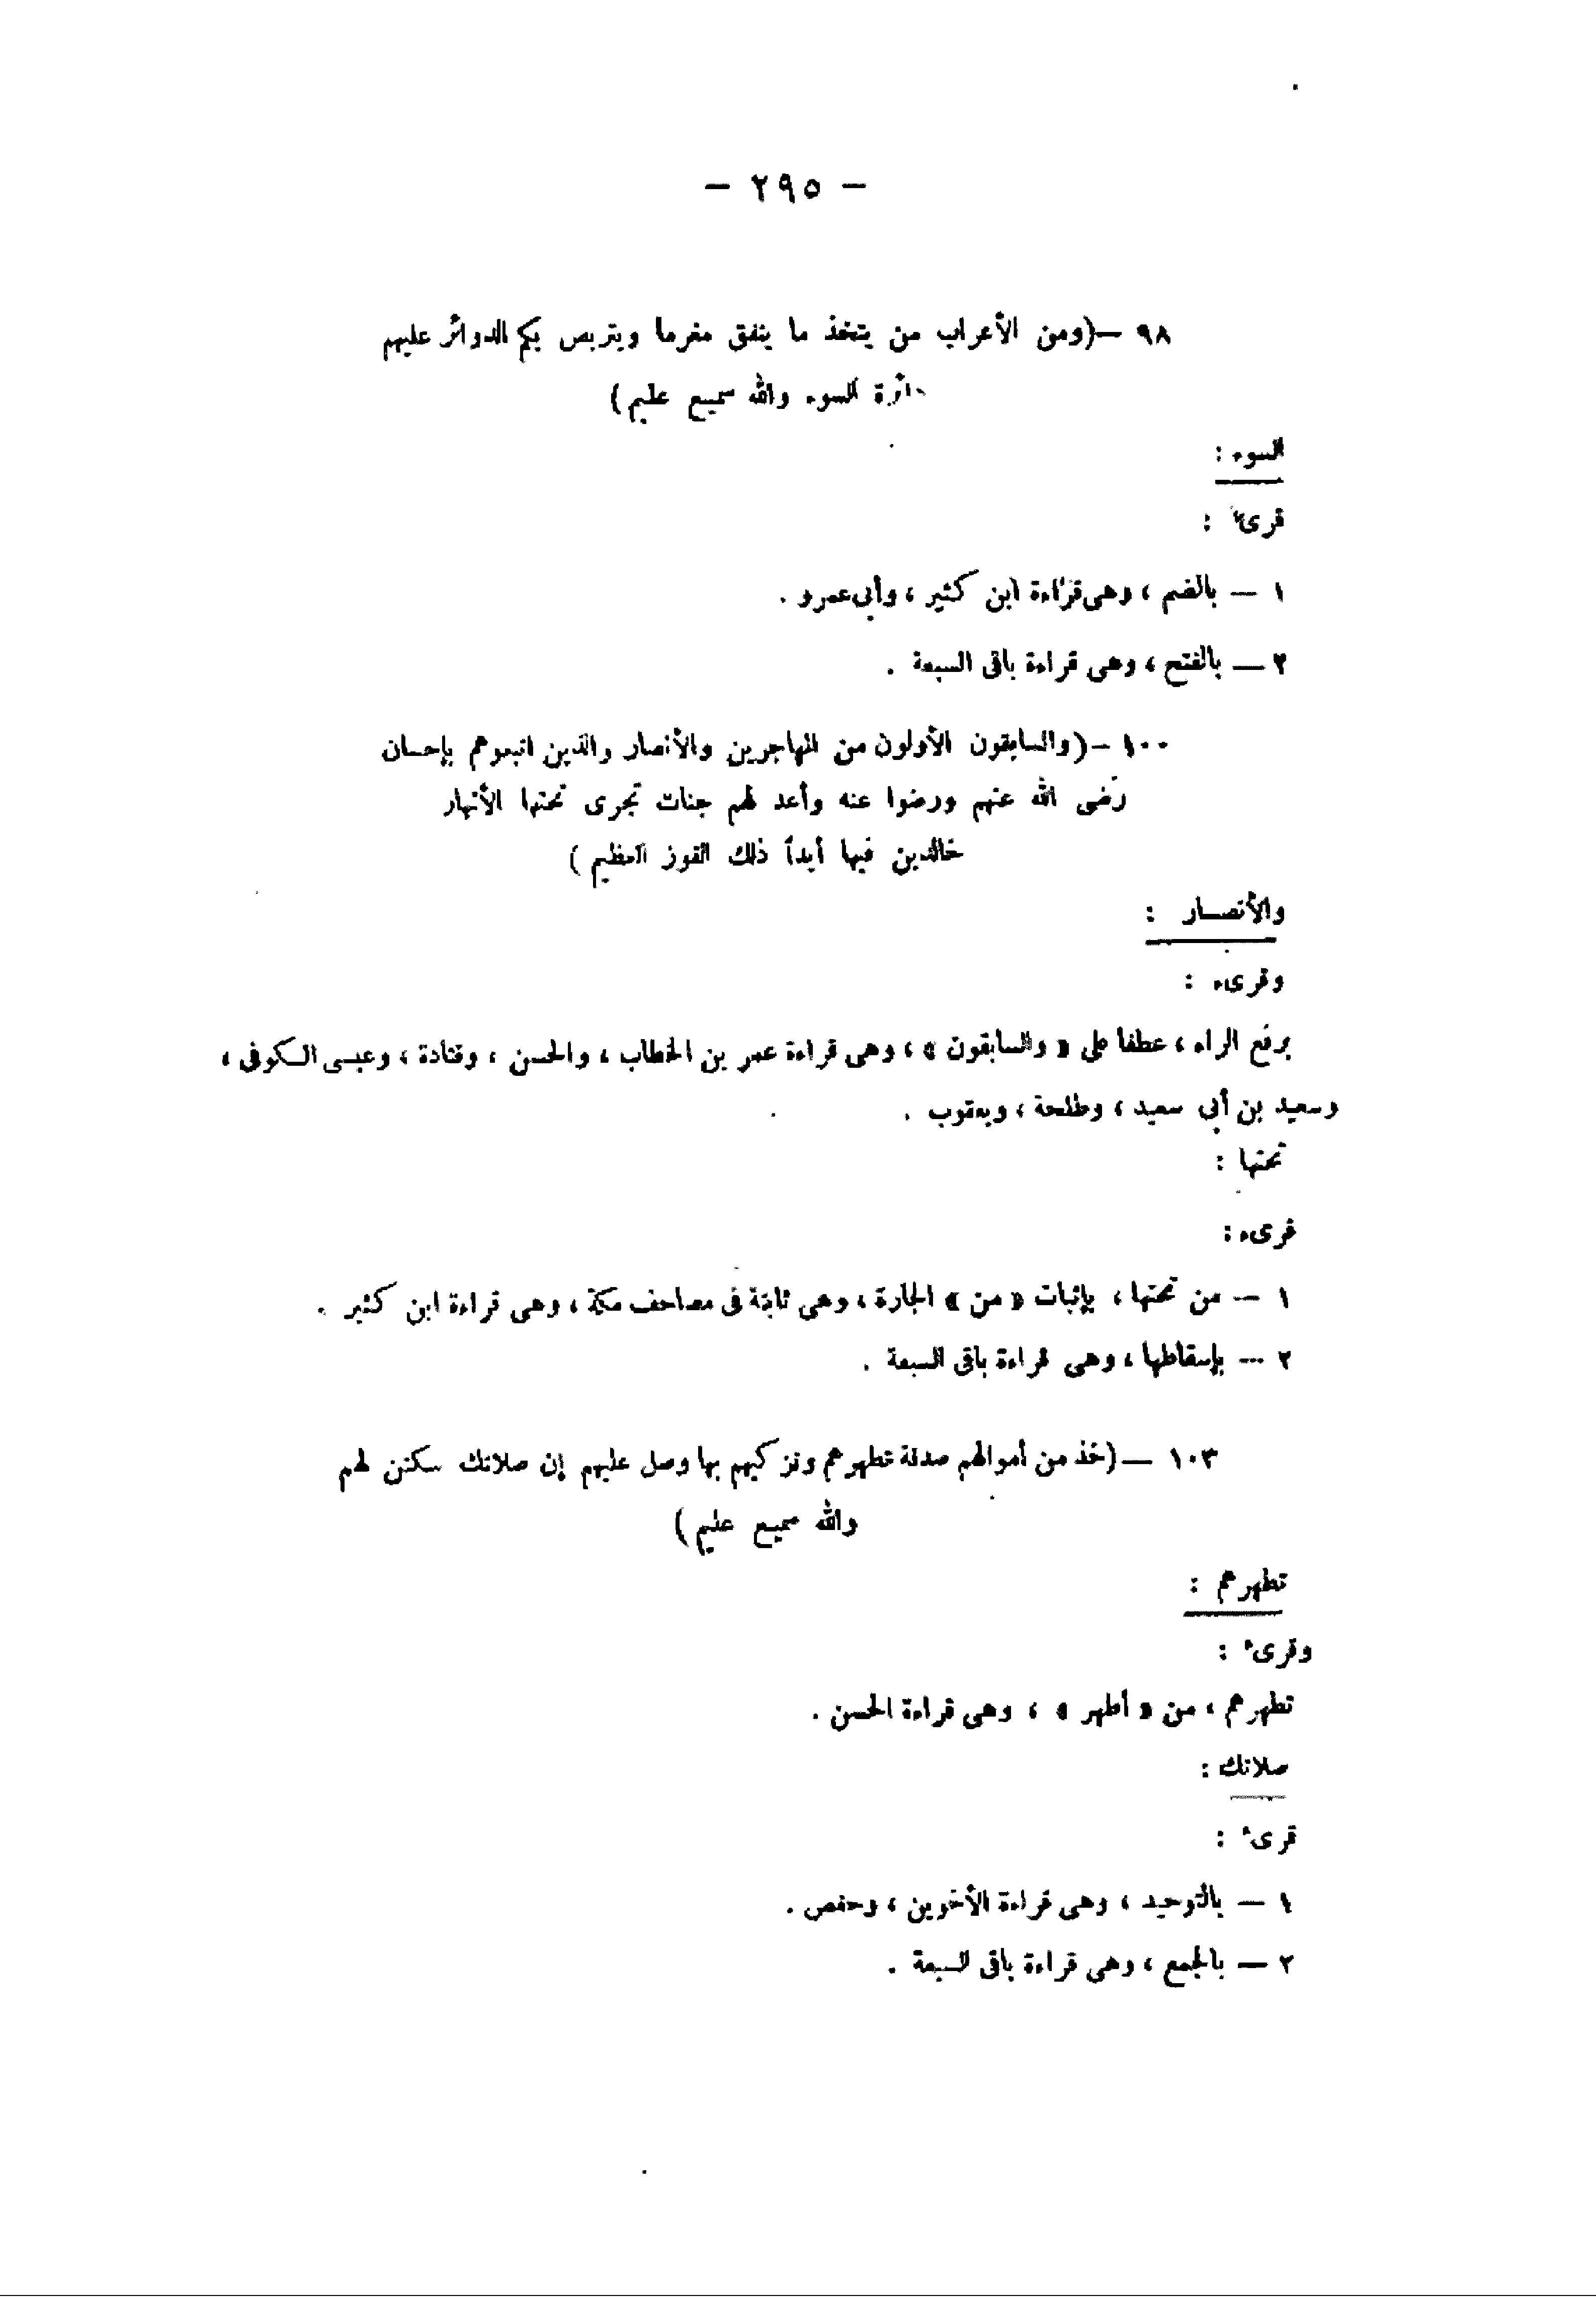 — ٢٩٥ —
٩٨ —(ومن الأعراب من يتخذ ما ينفق مغرما ويتربص بكم الدوائر عليهم
دائرة السوء والله سميع عليم)
السوء :
قرىء :
١ — بالضم ، وهى قراءة ابن كثير ، وأبى عمرو .
٢ — بالفتح ، وهى قراءة باقى السبعة .
١٠٠ —(والسابقون الأولون من المهاجرين والأنصار والذين اتبعوهم بإحسان
رضى الله عنهم ورضوا عنه وأعد لهم جنات تجرى تحتها الأنهار
خالدين فيها أبداً ذلك الفوز العظيم)
والأنصار :
وقرىء :
برفع الراء ، عطفا على « والسابقون » ، وهى قراءة عمر بن الخطاب ، والحسن ، وقتادة ، وعيسى الكوفى ،
وسعيد بن أبى سعيد ، وطلحة ، ويعقوب .
تحتها :
قرىء :
١ — من تحتها ، بإثبات « من » الجارة ، وهى ثابتة فى مصاحف مكة ، وهى قراءة ابن كثير .
٢ — بإسقاطها ، وهى قراءة باقى السبعة .
١٠٣ —(خذ من أموالهم صدقة تطهرهم وتزكيهم بها وصل عليهم إن صلاتك سكن لهم
والله سميع عليم)
تطهرهم :
وقرىء :
تطهرهم ، من « أطهر » ، وهى قراءة الحسن .
صلاتك :
قرىء :
١ — بالتوحيد ، وهى قراءة الأخوين ، وحفص .
٢ — بالجمع ، وهى قراءة باقى السبعة .